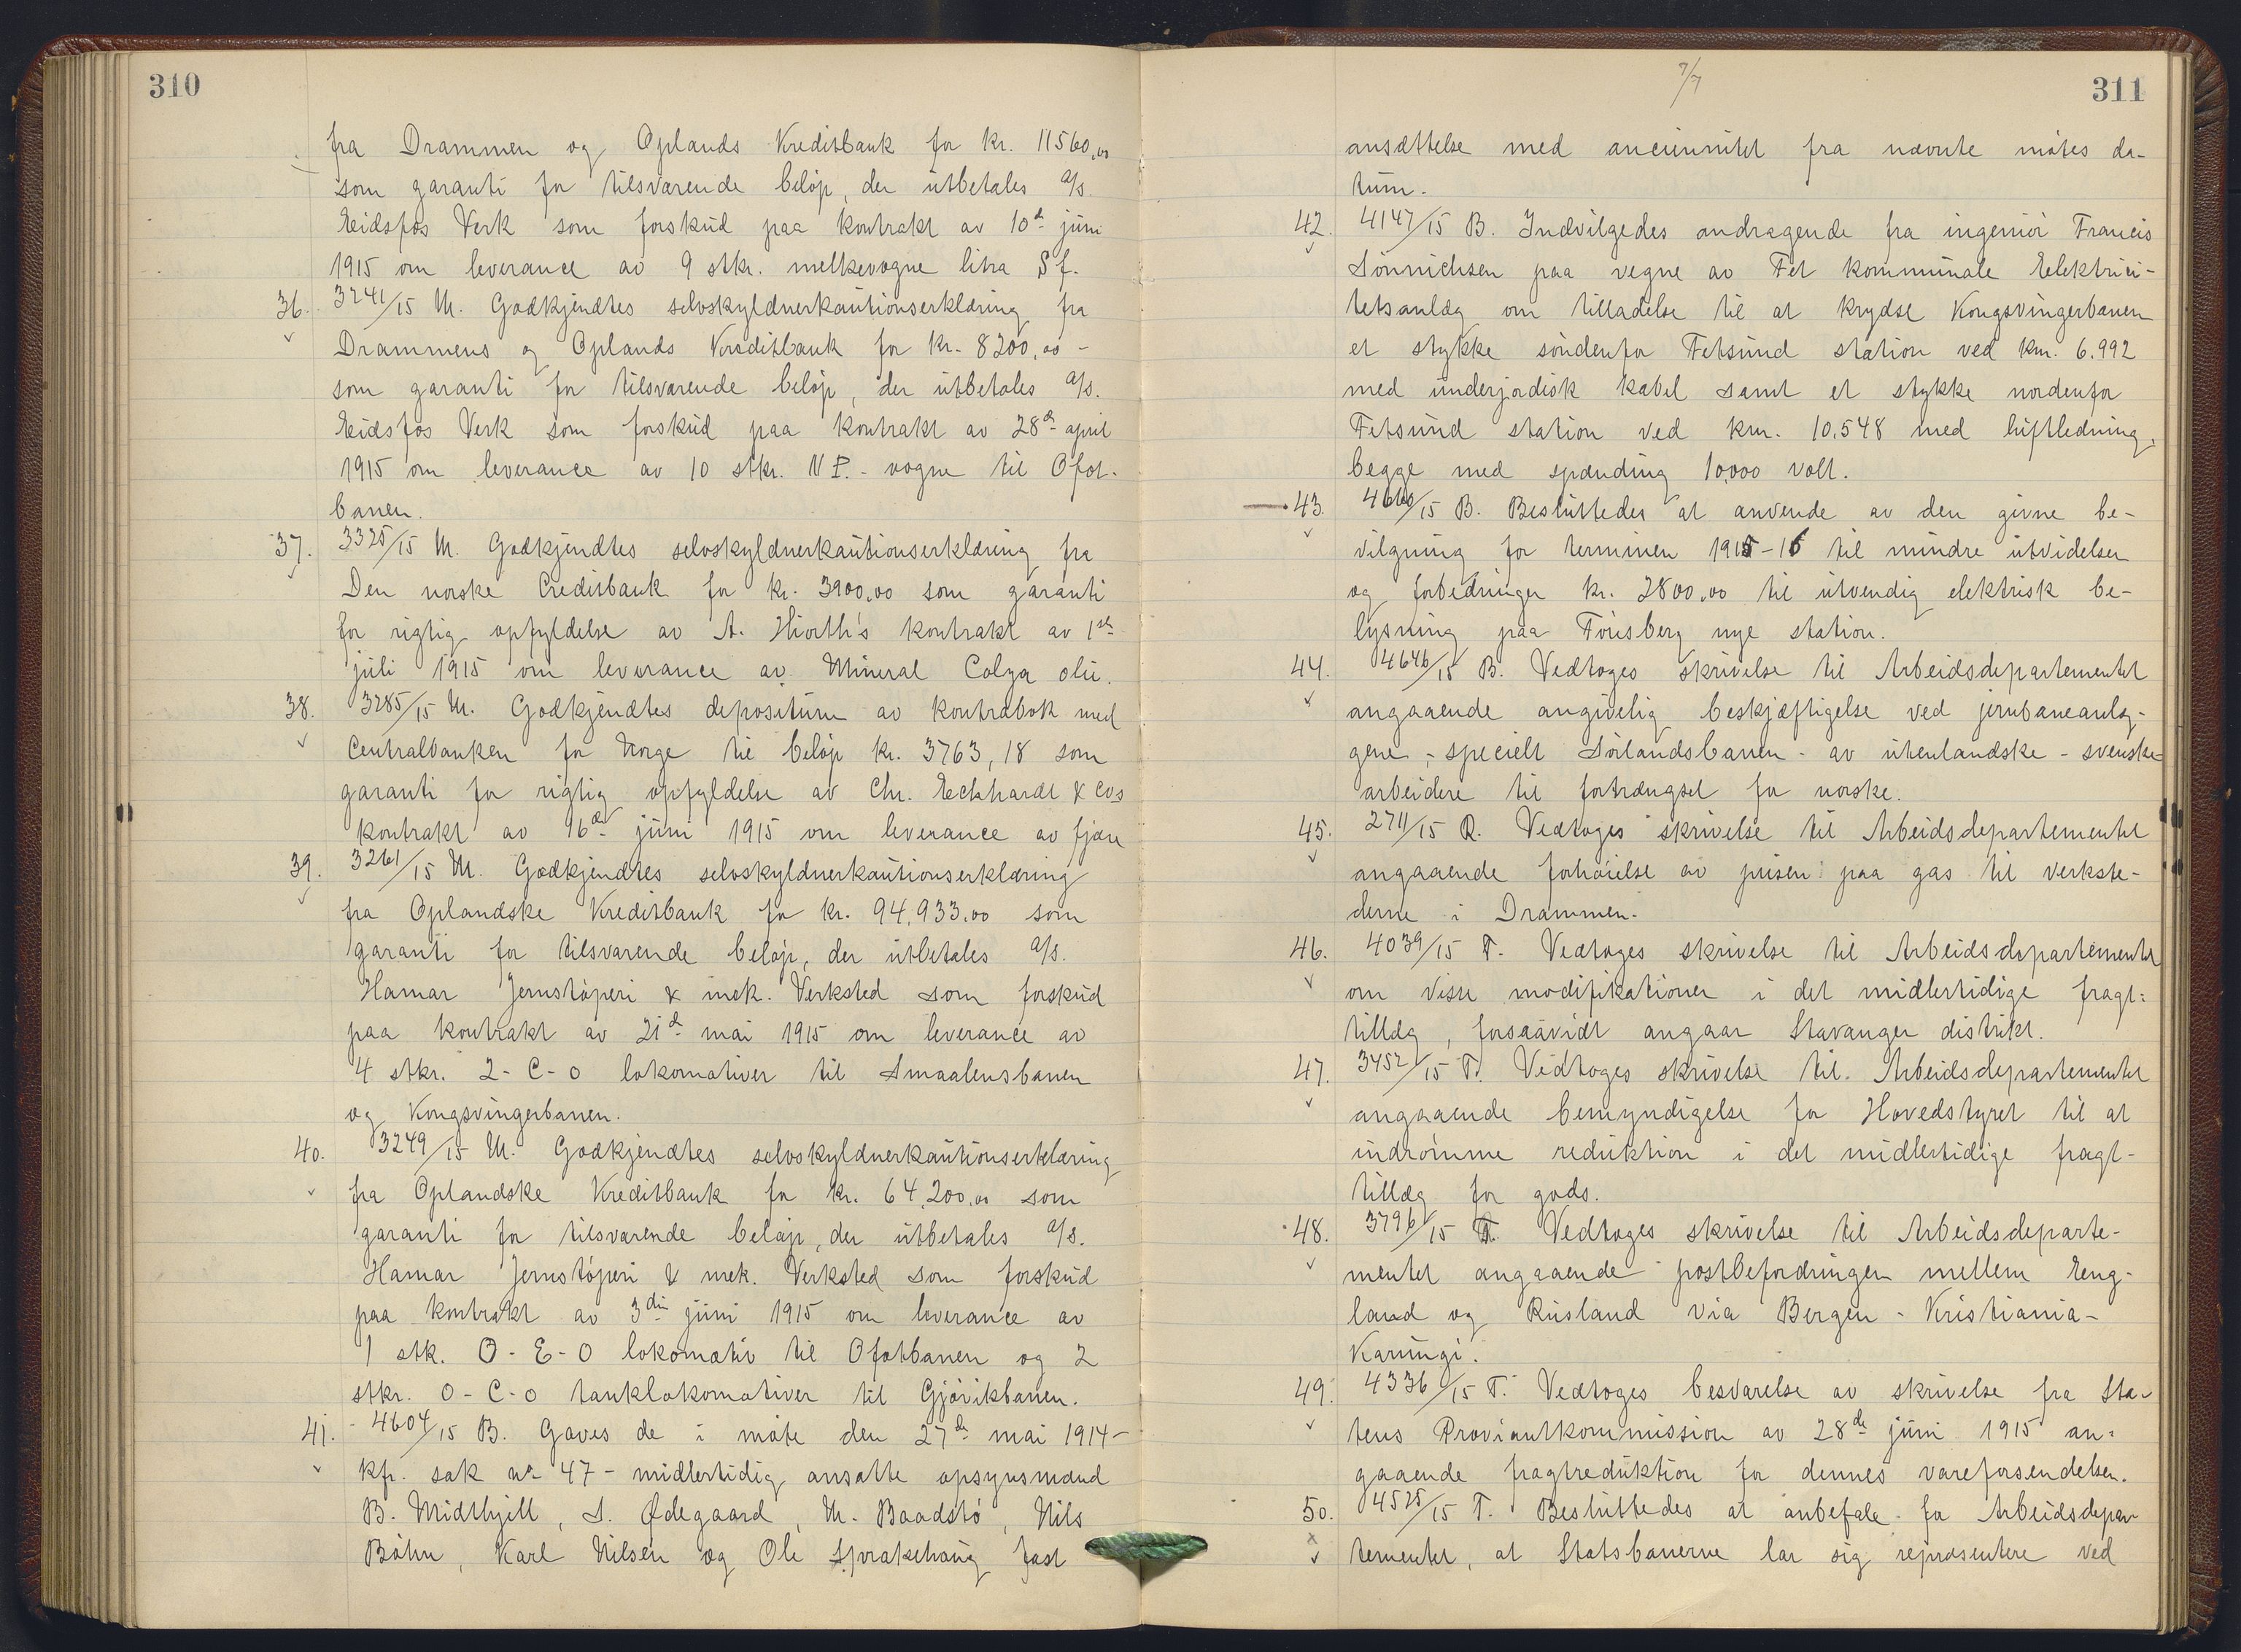 310
fra Drammen og Oplands Kreditbank for kr. 11560,00
som garanti for tilsvarende beløp, der utbetales a/s.
Eidsfos Verk som forskud paa kontrakt av 10de juni
1915 om leverance av 9 stkr. melkevogne litra Sf.
36. 3241/15 M. Godkjendtes selvskyldnerkautionserklæring fra
Drammens og Oplands Kreditbank for kr. 8200,00 -
som garanti for tilsvarende beløp, der utbetales a/s.
Eidsfos Verk som forskud paa kontrakt av 28de april
1915 om leverance av 10 stkr. N P. - vogne til Ofot-
banen.
37. 3325/15 M. Godkjendtes selvskyldnerkautionserklæring fra
Den norske Creditbank for kr. 3900,00 som garanti
for rigtig opfyldelse av A. Hiorth's kontrakt av 1ste
juli 1915 om leverance av Mineral Colza olie.
38. 3285/15 M. Godkjendtes depositum av kontrabok med
Centralbanken for Norge til beløp kr. 3763,18 som
garanti for rigtig opfyldelse av Chr. Eckhardt & Cos
kontrakt av 16de juni 1915 om leverance av fjære
39. 3261/15 M. Godkjendtes selvskyldnerkautionserklæring
fra Oplandske Kreditbank for kr. 94.933.00 som
garanti for tilsvarende beløp, der utbetales a/s.
Hamar Jernstøperi & mek. Verksted som forskud
paa kontrakt av 21de mai 1915 om leverance av
4 stkr. 2-C-0 lokomotiver til Smaalensbanen
og Kongsvingerbanen.
40. 3249/15 M. Godkjendtes selvskyldnerkautionserklæring
fra Oplandske Kreditbank for kr. 64,200,00 som
garanti for tilsvarende beløp, der utbetales a/s.
Hamar Jernstøperi & mek. Verksted som forskud
paa kontrakt av 3die juni 1915 om leverance av
1 stk. 0-E-0 lokomotiv til Ofotbanen og 2
stkr. 0-C-0 tanklokomotiver til Gjøvikbanen.
41. 4604/15 B. Gaves de i møte den 27de mai 1914 -
kfr. sak no 47 - midlertidig ansatte opsynsmænd
B. Midthjell, S. Ødegaard, M. Baadstø, Nils
Bøhn, Karl Nilsen og Ole Sprakehaug fast
7/7
311
ansættelse med anciennitet fra nævnte møtes da-
tum.
42. 4147/15 B. Indvilgedes andragende fra ingeniør Francis
Sønnichsen paa vegne av Fet kommunale Elektrici-
tetsanlæg om tilladelse til at krydse Kongsvingerbanen
et stykke søndenfor Fetsund station ved km. 6.992
med underjordisk kabel samt et stykke nordenfor
Fetsund station ved km. 10.548 med luftledning,
begge med spænding 10,000 volt.
43. 4660/15 B. Besluttedes at anvende av den givne be-
vilgning for terminen 1915-16 til mindre utvidelser
og forbedringer kr. 2800,00 til utvendig elektrisk be-
lysning paa Tønsberg nye station.
44. 4646/15 B. Vedtoges skrivelse til Arbeidsdepartementet
angaaende angivelig beskjæftigelse ved jernbaneanlæg-
gene - specielt Sørlandsbanen - av utenlandske - svenske -
arbeidere til fortrængsel for norske.
45. 2711/15 R. Vedtoges skrivelse til Arbeidsdepartementet
angaaende forhøielse av prisen paa gas til verkste-
derne i Drammen.
46. 4039/15 T. Vedtoges skrivelse til Arbeidsdepartementet
om visse modifikationer i det midlertidige fragt-
tillæg, forsaavidt angaar Stavanger distrikt.
47. 3452/15 T. Vedtoges skrivelse til Arbeidsdepartementet
angaaende bemyndigelse for Hovedstyret til at
indrømme reduktion i det midlertidige fragt-
tillæg for gods.
48. 3796/15 T. Vedtoges skrivelse til Arbeidsdeparte-
mentet angaaende postbefordringen mellem Eng-
land og Rusland via Bergen - Kristiania -
Karungi.
49. 4336/15 T. Vedtoges besvarelse av skrivelse fra Sta-
tens Proviantkommission av 28de juni 1915 an-
gaaende fragtreduktion for dennes vareforsendelser.
50. 4525/15 T. Besluttedes at anbefale for Arbeidsdepar-
tementet, at Statsbanerne lar sig repræsentere ved